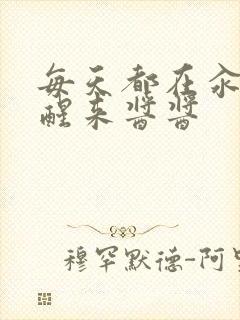 每天都在汆
醒来酱酱
穆罕默德-阿